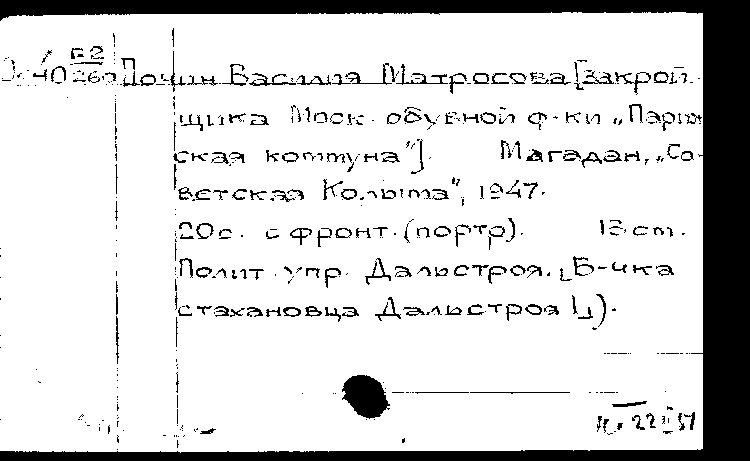 п2
40 260 Почин Василия Матросова [закрой-
щика Моск. обувной ф-ки „Париж
ская коммуна"]. Магадан, „Со-
ветская Колыма", 1947.
20с. с фронт. (портр). 13 cm.
Полит. упр. Дальстроя. [Б-чка
стахановца Дальстроя 1]).
22 II 51